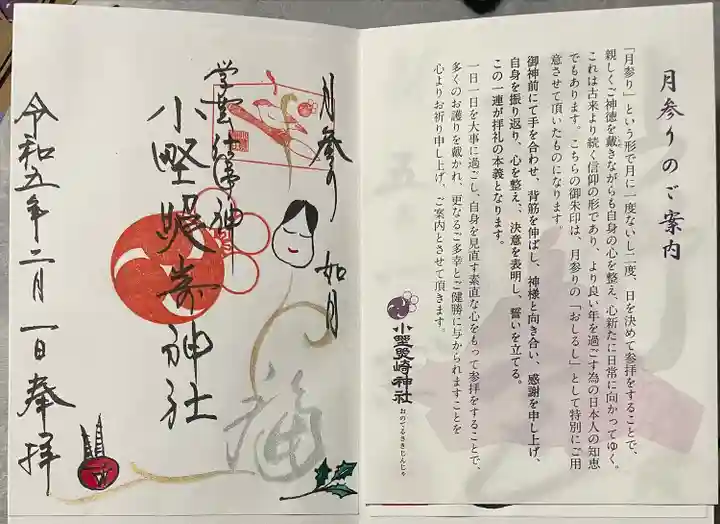 月参りのご案内
「月参り」という形で月に一度ないし二度、日を決めて参拝をすることで、
親しくご神徳を戴きながらも自身の心を整え、心新たに日常に向かってゆく。
これは古来より続く信仰の形であり、より良い年を過ごす為の日本人の知恵
でもあります。こちらの御朱印は、月参りの「おしるし」として特別にご用
意させて頂いたものになります。
御神前にて手を合わせ、背筋を伸ばし、神様と向き合い、感謝を申し上げ、
自身を振り返り、心を整え、、決意を表明し、誓いを立てる。
この一連が拝礼の本義となります。
一日一日を大事に過ごし、自身を見直す素直な心をもって参拝をすることで、
多くのお護りを戴かれ、更なるご多幸とご健勝に与かられますことを
心よりお祈り申し上げ、ご案内とさせて頂きます。
小野照崎神社
おのてるさきじんじゃ
月参り 如月
福
学芸仕事神
小野照崎神社
令和五年二月一日奉拝